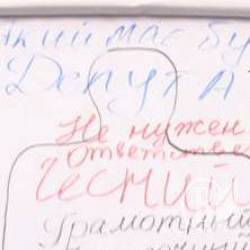 який має бу
Депута
Не нужен
Ответстве
чесний
Грамотный